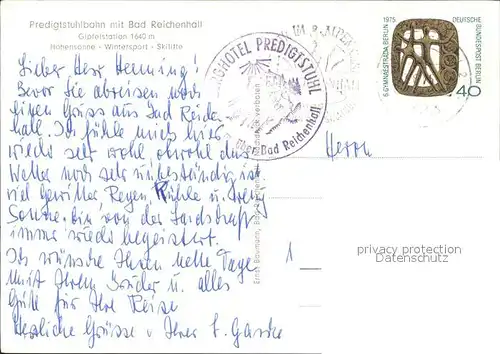 Predigtstuhlbahn mit Bad Reichenhall
Gipfelstation 1640 m
Höhensonne - Wintersport - Skilifte
Lieber Herr Henning!
Bevor Sie abreisen noch
einen Gruss aus Bad Reichen-
hall. Ich fühle mich hier
wieder sehr wohl obwohl das
Wetter noch sehr unbeständig ist
viel Gewitter, Regen, Kühle u. wenig
Sonne. Bin von der Landschaft
immer wieder begeistert.
Ich wünsche Ihnen nette Tage
mit Ihrem Bruder u. alles
Gute für Ihre Reise
Herzliche Grüsse Ihrer
BERGHOTEL PREDIGTSTUHL
über Bad Reichenhall
Ernst Baumann, Bad Reichenhall
verboten
1975
6. GYMNAESTRADA BERLIN
DEUTSCHE BUNDESPOST BERLIN
40
Herrn
1
privacy protection
Datenschutz